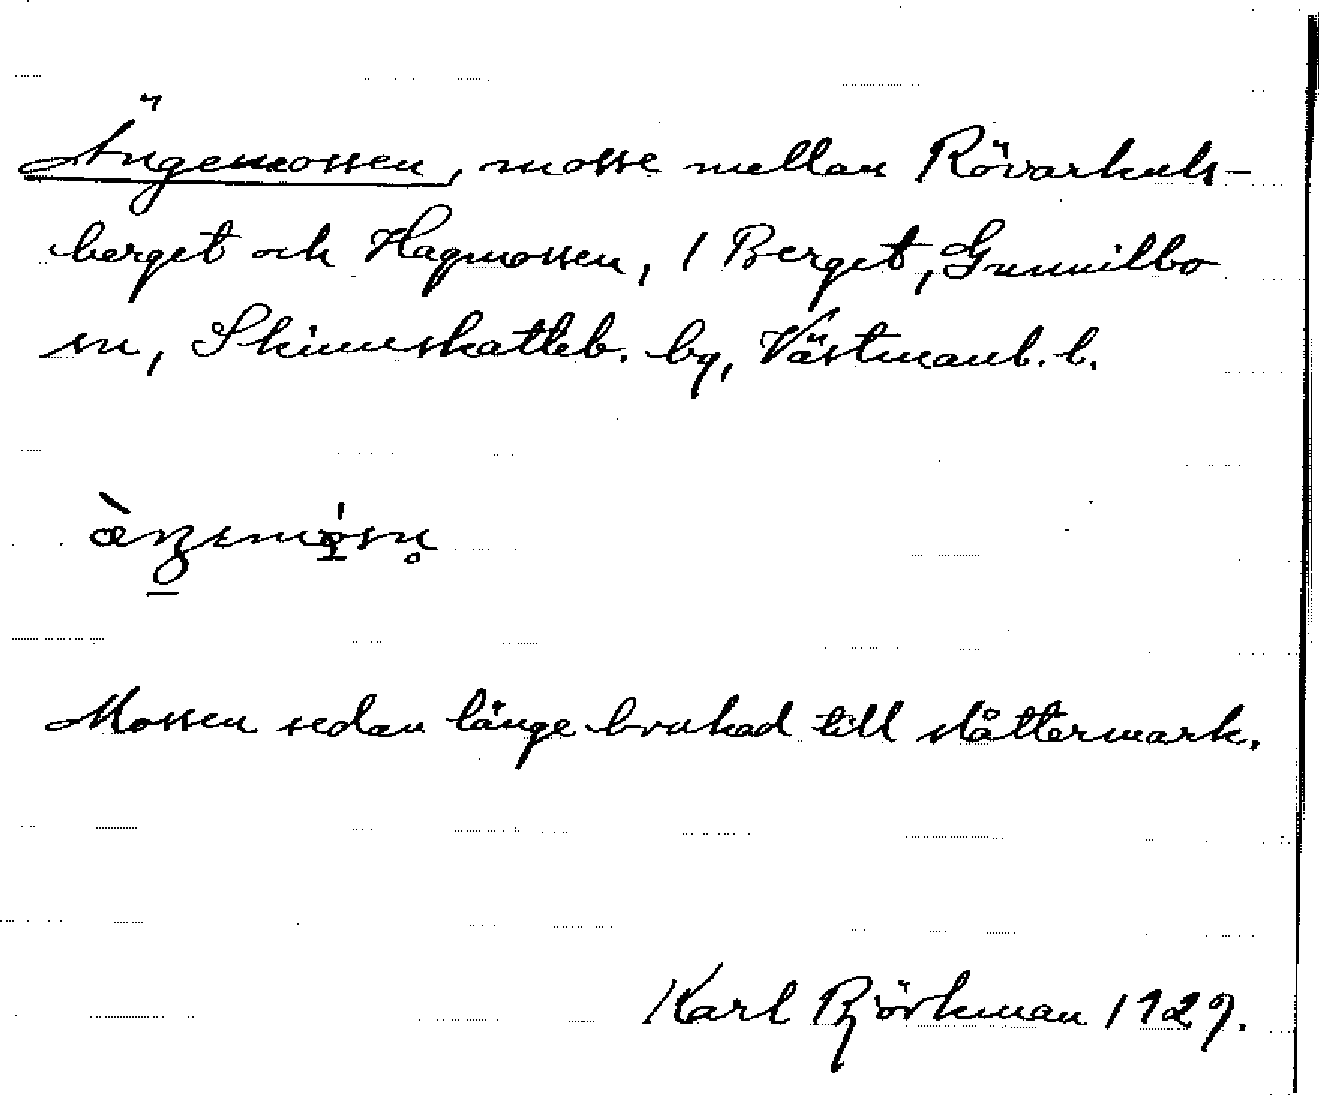 Ängemossen, mosse mellan Rövarkuls-
berget och Hagmossen, 1 Berget, Gunnilbo
sn, Skinnskatteb. bg, Västmanl. l.
Mossen sedan länge brukad till slåttermark.
Karl Björkman 1929.